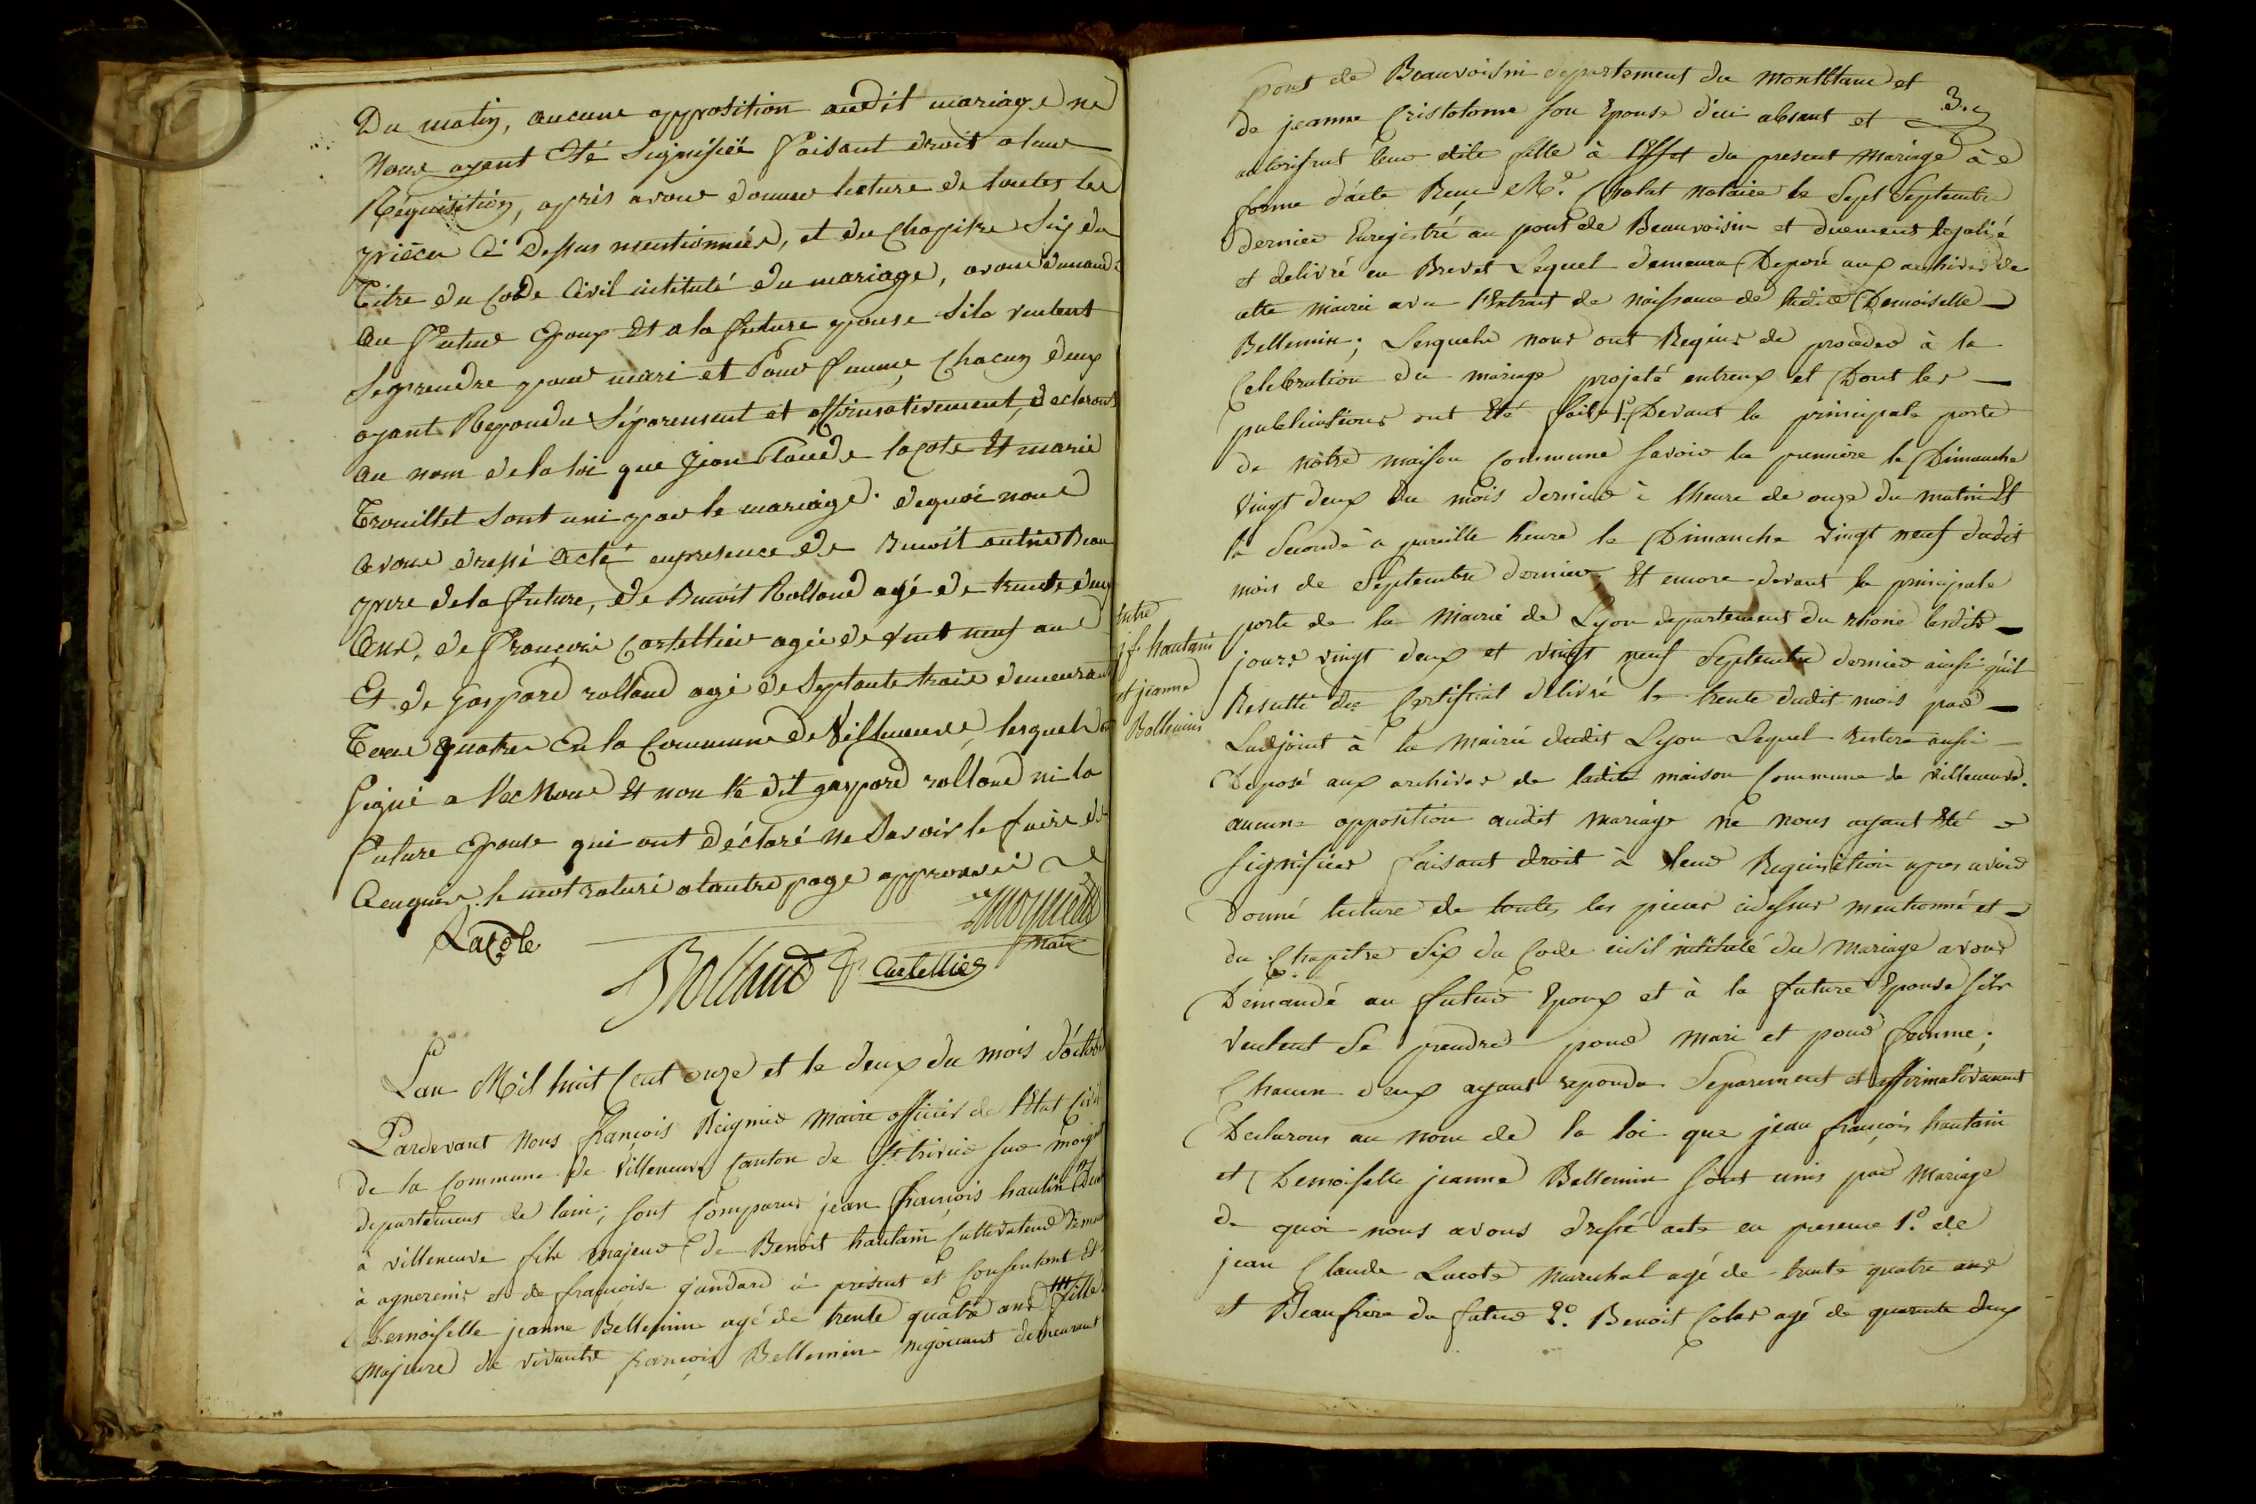 Du matin, aucune opposition audit mariage ne
Nous ayant Eté Signifiée faisant droit a leur
Réquisition, après avoir donner lecture de toutes les
pièces Ci Dessus mentionnées, et du Chapitre Six du
Titre du Code Civil intitulé du mariage, avons demandé
au futur Epoux Et a la future epouse Sils veulent
Se prendre pour mari et Pour femme, Chacun deux
ayant Repondu Séparement et affirmativement, déclarons
au nom de la loi que Jean Claude lacote Et marie
Trouillet sont uni par le mariage. de quoi nous
avons dressé acte en presence de Benoit
pere de la future, de Benoit Rolland agé de trente deux
Ans, de François Cartellier agé de vint neuf ans
Et de Gaspard rolland agé de Septante trois demeurant
Tous quatre En la Commune de Villeneuve, lesquels ont
Signé avec Nous Et non le dit gaspard rolland ni la
future Epouse qui ont déclaré ne Savoir le faire de
Ce enquis. le mot raturé a lautre page approuvé
Lacote
Reignier
Maire
Rolland
Cartellier
Lan Mil huit Cent onze et le deux du mois d'octobre
Pardevant Nous françois Reignier Maire officier de l'Etat Civil
de la Commune de Villeneuve Canton de St. trivier sur moignat
departement de lain; sont Comparus jean françois hautin
à villeneuve fils majeur de Benoit hautain Cultivateur demeurant
à agnereins et de françoise gandard à présent et Consentant Et
Demoiselle jeanne Bellemin agé de trente quatre ans fille
Majeure de vivants françois Bellemin negociant demeurant
3.
pont de Beauvoisin departement du Montblanc et
de jeanne Cristotome son Epouse d'ici absant et
autorisant leur dite fille à l'Effet du present Mariage à
forme d'acte Reçu Me. notaire le Sept Septembre
dernier Enregistré au pont de Beauvoisin et duement legalisé
et delivré en Brevet Lequel demeura Deposé aux archives de
cette mairie avec l'Extrait de naissance de ladite Demoiselle
Bellemin; Lesquels nous ont Requis de proceder à la
Celebration du mariage projeté entreux et Dont les
publications ont Eté faites Devant la principale porte
de nôtre maison Commune Savoir la premiere le Dimanche
Vingt deux du mois dernier à l'heure de onze du matin Et
la Seconde à pareille heure le Dimanche vingt neuf dudit
mois de Septembre dernier Et encore devant la principale
porte de la Mairie de Lyon departement du rhone lesdits
jours vingt deux et vingt neuf Septembre dernier ainsi qu'il
Resulte du Certificat délivré le trente dudit mois par
Ladjoint à la Mairie dudit Lyon Lequel restera aussi
Deposé aux archives de ladite maison Commune de villeneuve.
aucune opposition audit Mariage ne nous ayant Eté
Signifiée faisant droit à leur Requisition apres avoir
Donné lecture de toutes les pieces cidessus mentionné et
du Chapitre Six du Code civil intitulé du Mariage avons
Demandé au futur Epoux et à la future Epouse sils
veulent Se prendre pour Mari et pour femme;
Chacun deux ayant repondu Separement et affirmativement
Declarons au nom de la loi que jean françois hautain
et Demoiselle jeanne Bellemin sont unis par Mariage
de quoi nous avons dressé acte en presence 1.º de
jean Claude Lacote Marechal agé de trente quatre ans
et Beaufrere du futur 2.º Benoit Colas agé de quarante deux
Entre
j f. hautain
et jeanne
Bellemin